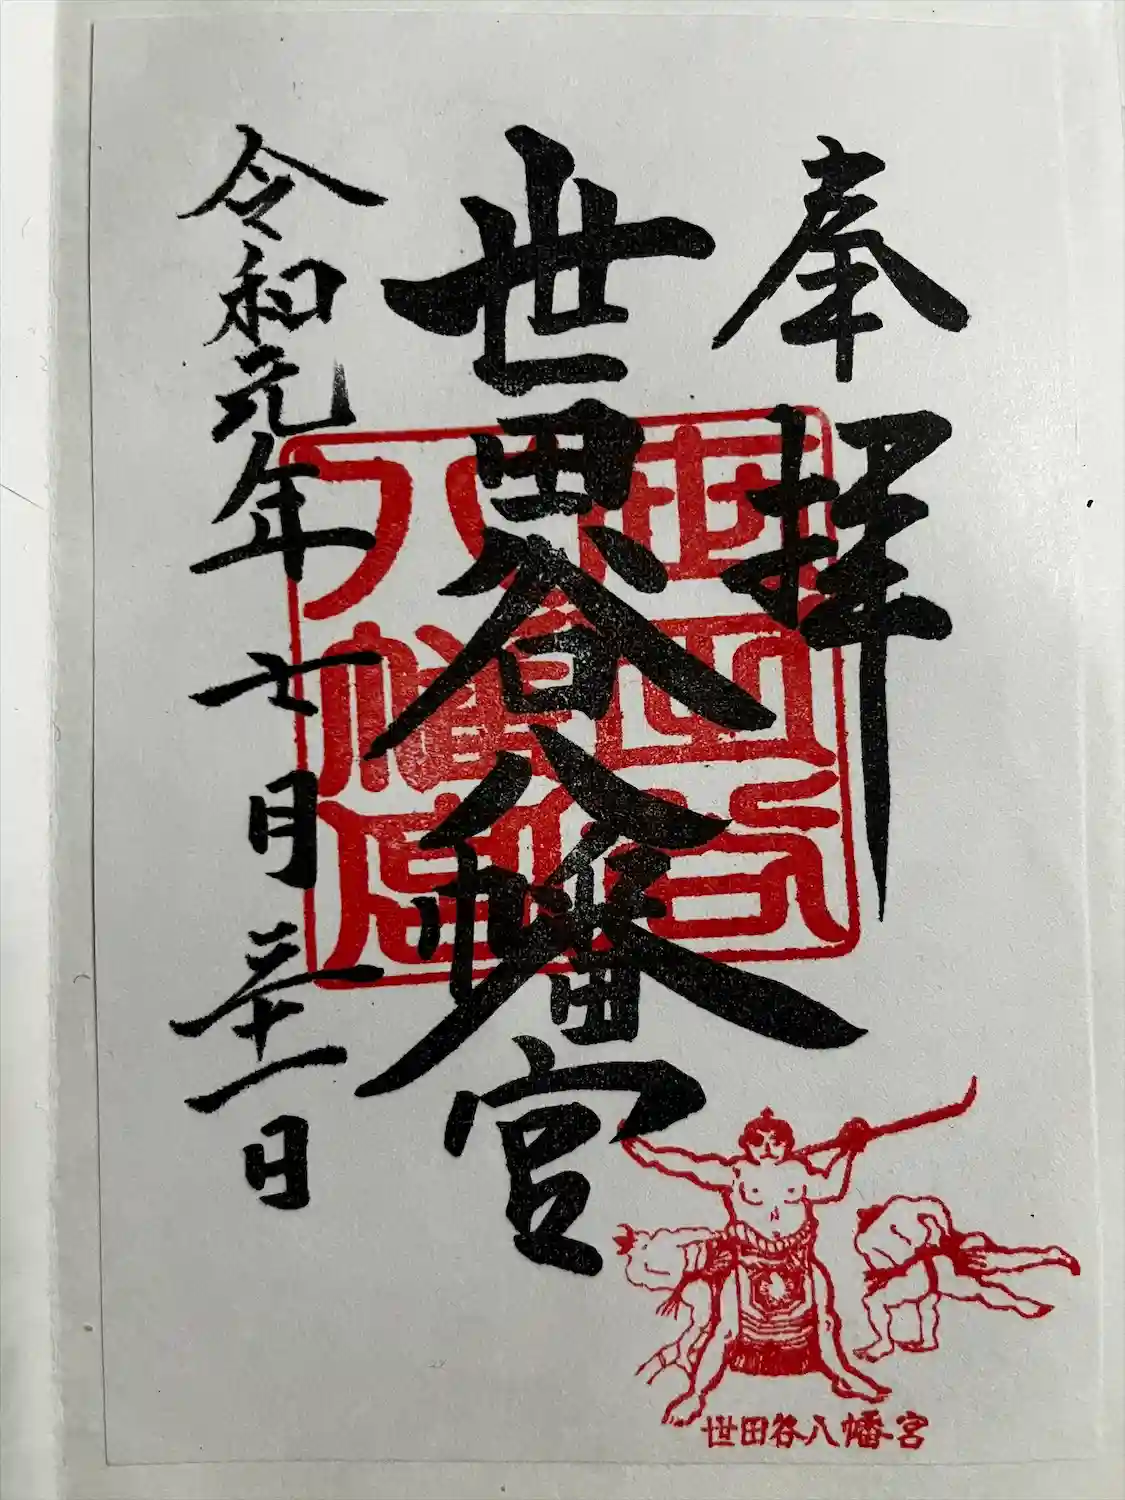 奉拝
世田谷八幡宮
世田谷八幡宮
令和元年七月三十一日
世田谷八幡宮